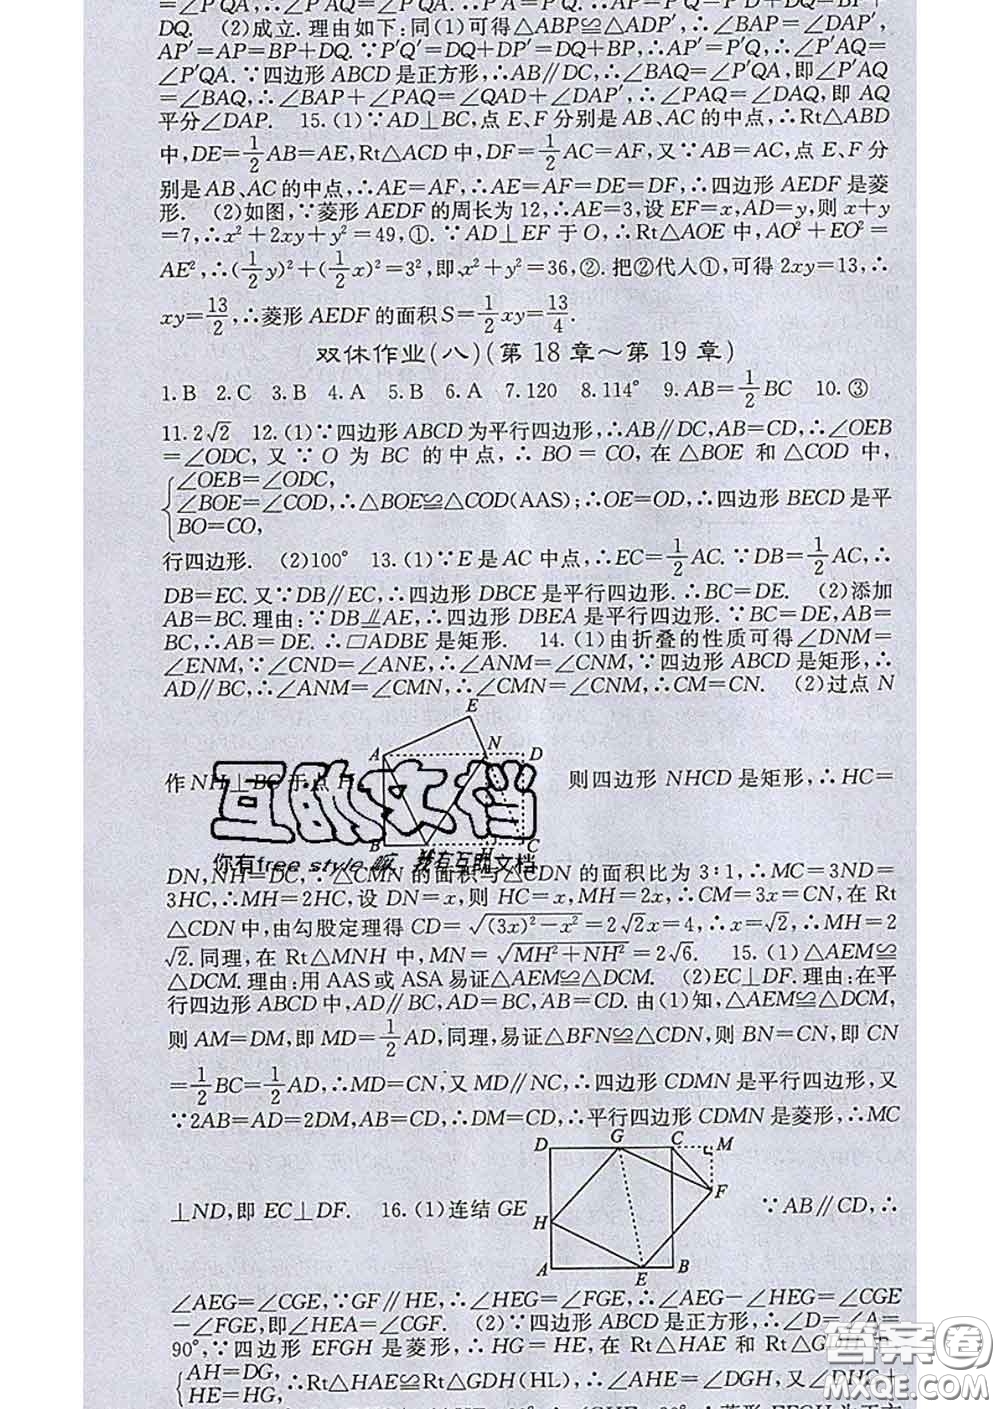 =∠PQA,∴∠P′AQ=∠P′QA.∴P′A=P′Q.
DQ. (2)成立.理由如下:同(1)可得△ABP≌△ADP′,∴∠BAP=∠DAP′,
AP′=AP=BP+DQ.∵P′Q′=DQ+DP′=DQ+BP,∴AP′=P′Q,∴∠P′AQ=
∠P′QA.∵四边形ABCD是正方形,∴AB∥DC,∴∠BAQ=∠P′QA,即∠P′AQ
=∠BAQ,∴∠BAP+∠PAQ=∠QAD+∠DAP′,∴∠PAQ=∠DAQ,即AQ
平分∠DAP. 15.(1)∵AD⊥BC,点E、F分别是AB、AC的中点,∴Rt△ABD
中,DE=1/2AB=AE,Rt△ACD中,DF=1/2AC=AF,又∵AB=AC,点E、F分
别是AB、AC的中点,∴AE=AF,∴AE=AF=DE=DF,∴四边形AEDF是菱
形. (2)如图,∵菱形AEDF的周长为12,∴AE=3,设EF=x,AD=y,则x+y
=7,∴x²+2xy+y²=49,①.∵AD⊥EF于O,∴Rt△AOE中,AO²+EO²=
AE²,∴(1/2y)²+(1/2x)²=3²,即x²+y²=36,②.把②代人①,可得2xy=13,∴
xy=13/2,∴菱形AEDF的面积S=1/2xy=13/4.
双休作业(八)(第18章~第19章)
1.B 2.C 3.B 4.A 5.B 6.A 7.120 8.114° 9.AB=1/2BC 10.③
11.2√2 12.(1)∵四边形ABCD为平行四边形,∴AB∥DC,AB=CD,∴∠OEB
=∠ODC,又∵O为BC的中点,∴BO=CO,在△BOE和△COD中,
∠OEB=∠ODC,
∠BOE=∠COD,∴△BOE≌△COD(AAS);∴OE=OD,∴四边形BECD是平
BO=CO,
行四边形. (2)100° 13.(1)∵E是AC中点,∴EC=1/2AC.∵DB=1/2AC,∴
DB=EC.又∵DB∥EC,∴四边形DBCE是平行四边形.∴BC=DE. (2)添加
AB=BC.理由:∵DB⊥⊥AE,∴四边形DBEA是平行四边形.∵BC=DE,AB=
BC,∴AB=DE.∴□ADBE是矩形. 14.(1)由折叠的性质可得∠DNM=
∠ENM,∵∠CND=∠ANE,∴∠ANM=∠CNM,∵四边形ABCD是矩形,∴
AD∥BC,∴∠ANM=∠CMN,∴∠CMN=∠CNM,∴CM=CN. (2)过点N
E
A N D
作NH⊥BC于点H 则四边形NHCD是矩形,∴HC=
互助文档
B H C
你有free style 嘛,我有互助文档
DN,NH=DC,∵△CMN的面积与△CDN的面积比为3:1,∴MC=3ND=
3HC,∴MH=2HC,设DN=x,则HC=x,MH=2x,∴CM=3x=CN,在Rt
△CDN中,由勾股定理得CD=√((3x)²−x²)=2√2x=4,∴x=√2,∴MH=2
√2.同理,在Rt△MNH中,MN=√(MH²+NH²)=2√6. 15.(1)△AEM≌
△DCM.理由:用AAS或ASA易证△AEM≌△DCM. (2)EC⊥DF.理由:在平
行四边形ABCD中,AD∥BC,AD=BC,AB=CD.由(1)知,△AEM≌△DCM,
则AM=DM,即MD=1/2AD,同理,易证△BFN≌△CDN,则BN=CN,即CN
=1/2BC=1/2AD,∴MD=CN,又MD∥NC,∴四边形CDMN是平行四边形,又
∵2AB=AD=2DM,AB=CD,∴DM=CD,∴平行四边形CDMN是菱形,∴MC
D G C M
F
⊥ND,即EC⊥DF. 16.(1)连结GE ∵AB∥CD,∴
H
A E B
∠AEG=∠CGE,∵GF∥HE,∴∠HEG=∠FGE,∴∠AEG−∠HEG=∠CGE
−∠FGE,即∠HEA=∠CGF. (2)∵四边形ABCD是正方形,∴∠D=∠A=
90°,∵四边形EFGH是菱形,∴HG=HE,在Rt△HAE和Rt△GDH中
AH=DG,
HE=HG,∴Rt△HAE≌Rt△GDH(HL),∴∠AHE=∠DGH,又∠DHG+
答案圈
MXQE.COM